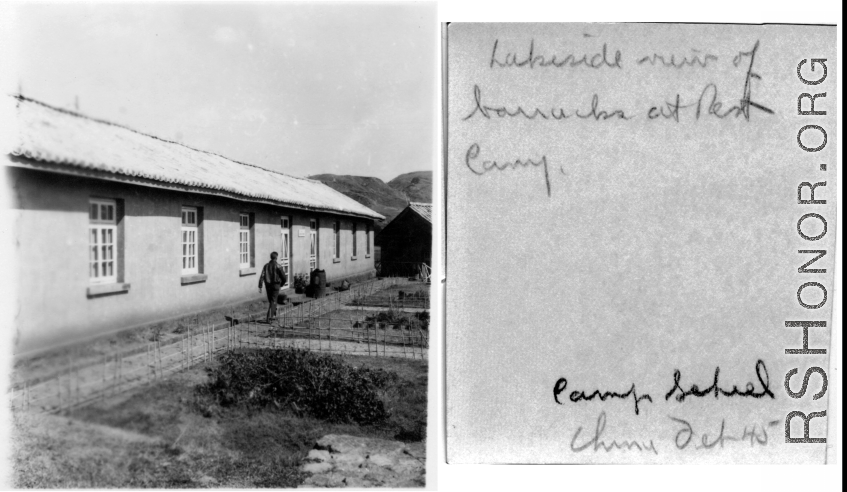 Lakeside view of
barracks at Rest
Camp.
Camp Schiel
China Feb 45
RSHONOR.ORG